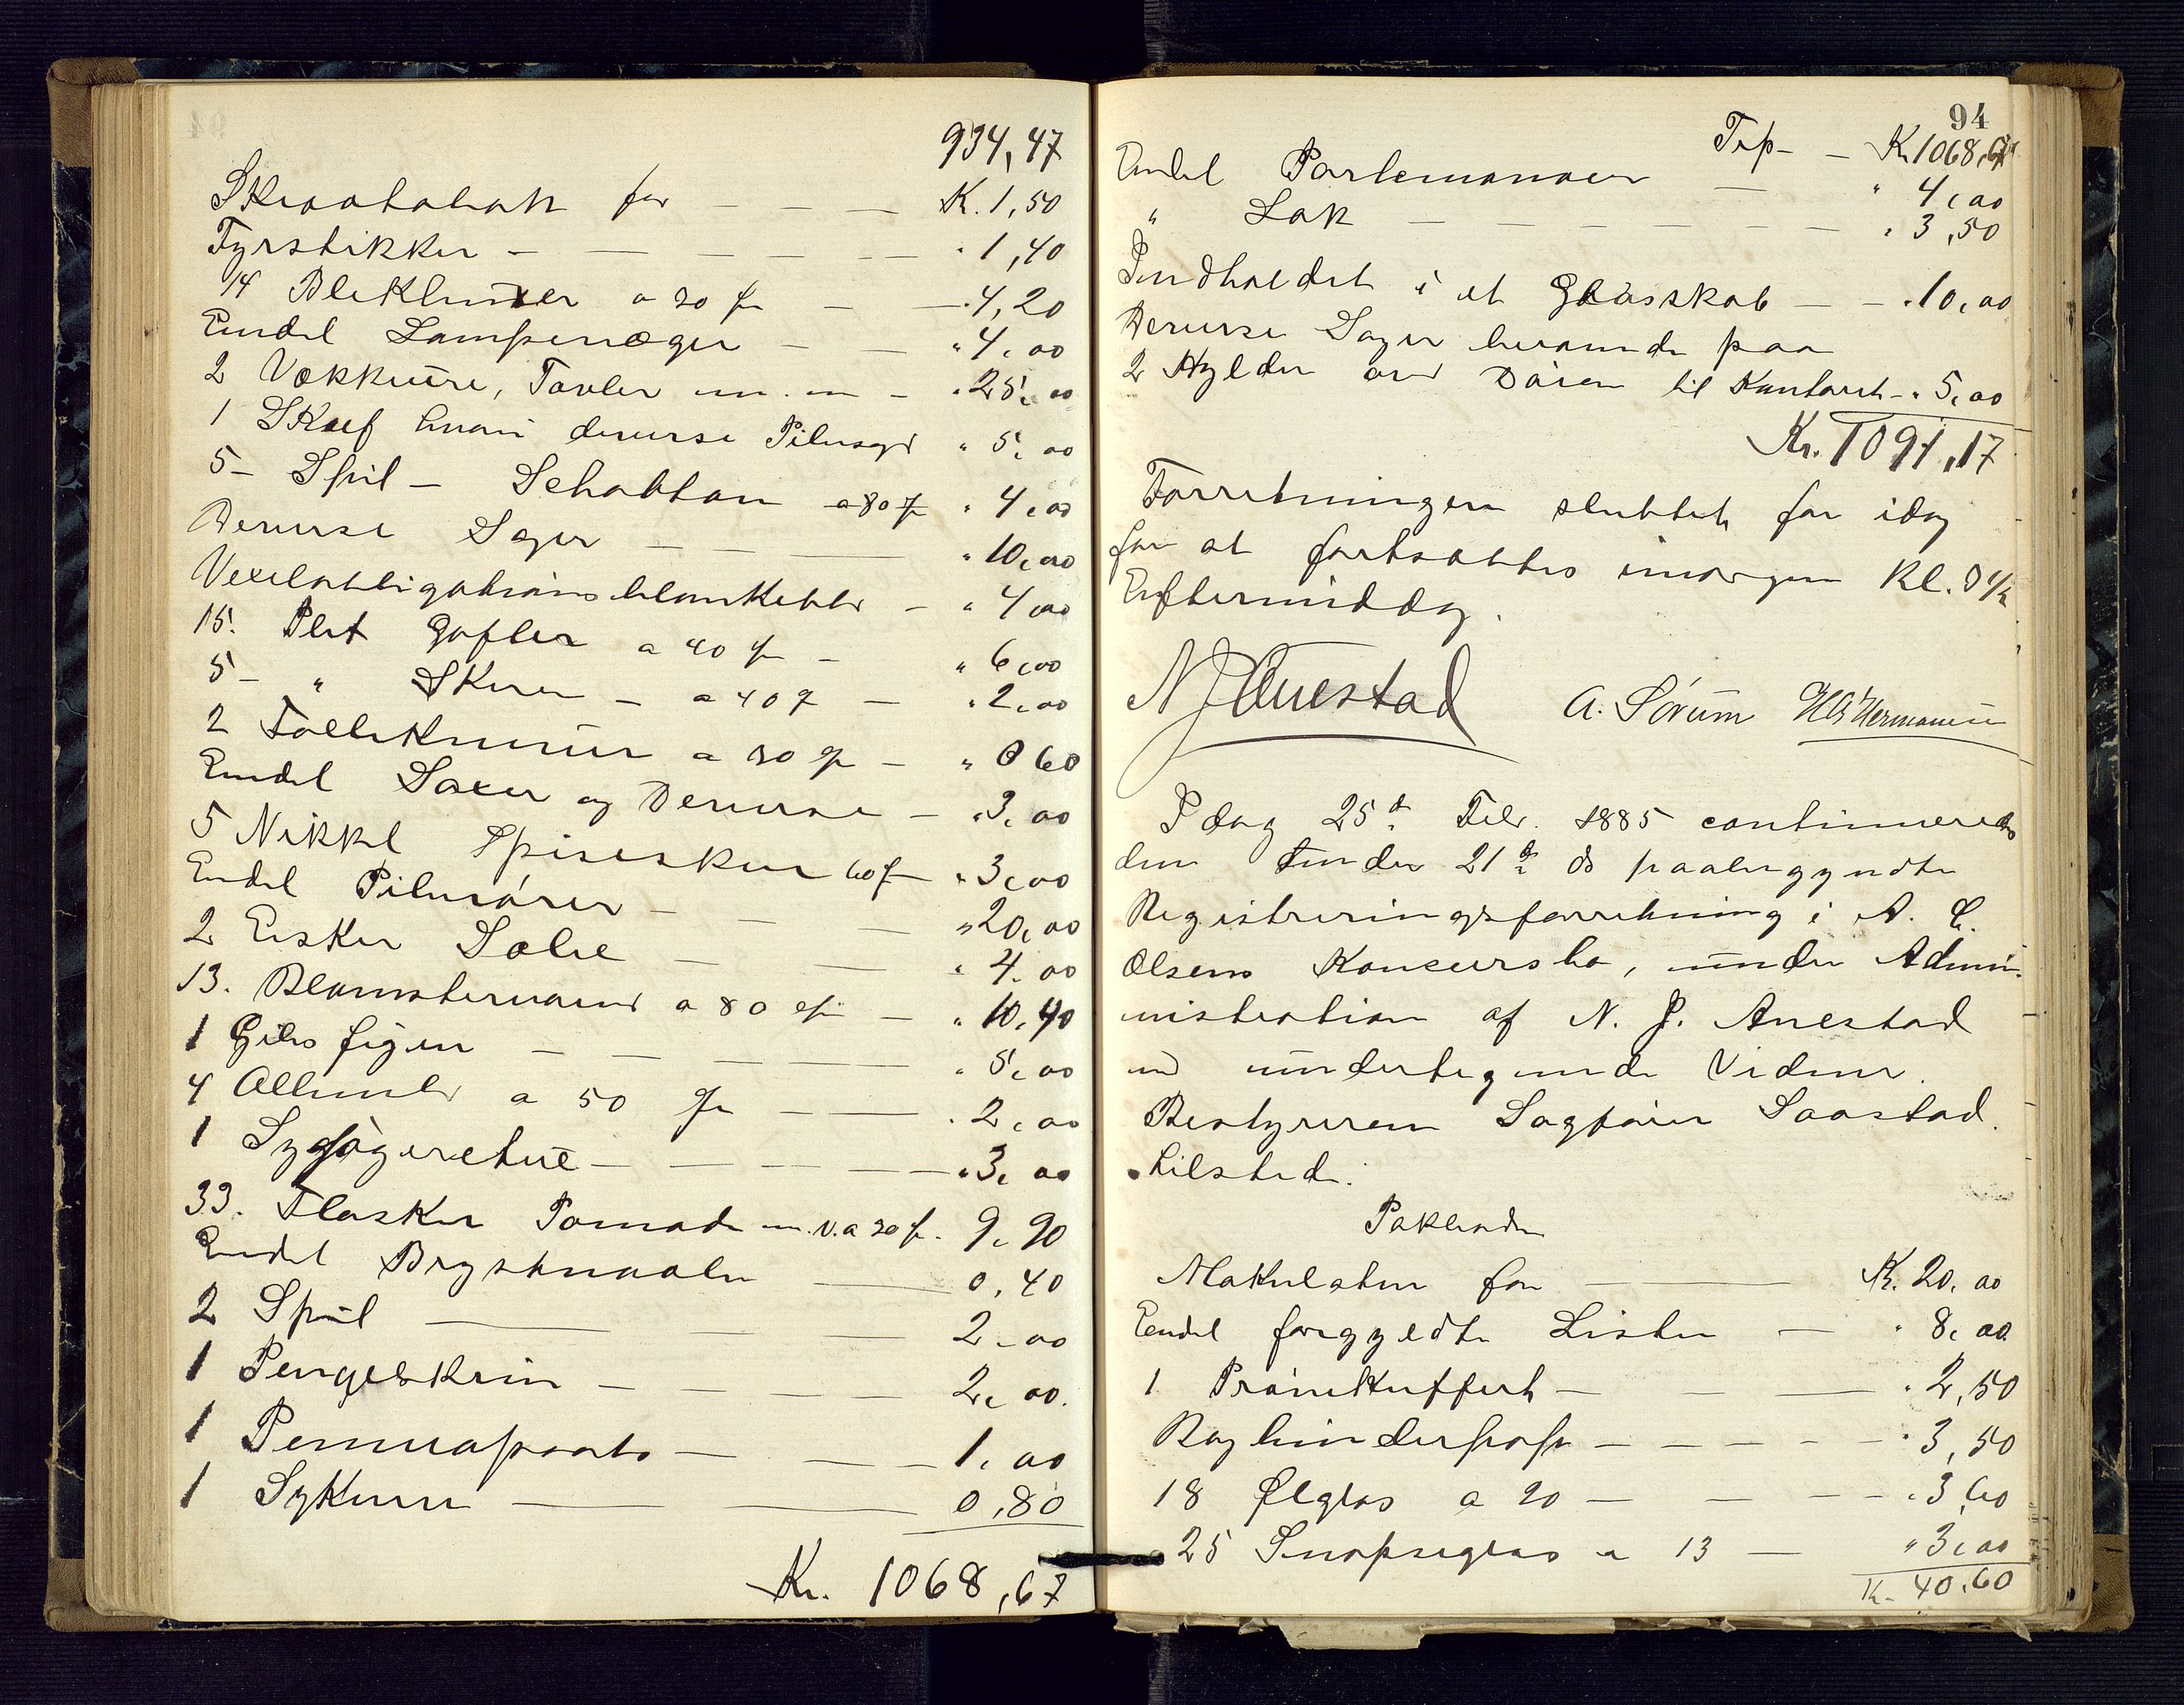 934,47
Skraatobak for — — — K. 1,50
Fyrstikker — — — — — " 1,40
14 Blæklinxer a 30 ø — — " 4,20
Endel Lampevæger — — " 4,00
2 Vækkeure, Tavler m. m — " 25,00
1 Skuf hvori diverse Piberagr " 5,00
5 — Spil — Schatten a 80 ø " 4,00
Diverse Sager — — — " 10,00
Vexelobligationsblanketter — " 4,00
15. Plet Gafler a 40 ø — " 6,00
5 — " Skeer — a 40 ø — " 2,00
2 Follekniver a 30 ø — " 0 60
Endel Saxer og Diverse — " 3,00
5 Nikkel Spiseskeer 60 ø — " 3,00
Endel Piberører — — — " 20,00
2 Esker Sæbe — — " 4.00
13. Blomstervaser a 80 ø — " 10,40
1 Gibs figur — — — — " 5,00
4 Albumer a 50 ø — — " 2,00
1 Syforgeretue — — — — " 3,00
33. Flasker Pomade m. v. a 30 ø. 9,90
Endel Brystnaale — 0,40
2 Spil — — — 2,00
1 Pengeskrin — — — — 2,00.
1 — — — 1,00
1 Sykurv — — 0,80
Kr. 1068,67
94
Trp — — Kr 1068,67
Endel Portemonaier — " 4,00
" Lak — — — — — — " 3,50
Indholdet i et Glasskab — — " 10,00
Diverse Sager beroende paa
2 Hylder over Døren til Kontoret — " 5,00
Kr. 1091,17
Forretningen sluttet for idag
for at fortsættes imorgen Kl. 3 1/2
Eftermiddag.
N J Anestad A. Sørum H Hermansen
I dag 25de Febr. 1885 continueredes
den under 21de ds paabegyndte
Registreringsforretning i A. C.
Olsens Konkursbo, under Admi-
nistration af N. J. Anestad
med undertegnede Vidner.
Bestyreren Sagfører Saastad
tilstede.
Pakbode
Makulatur for — — Kr. 20,00
Endel forgyldte Lister — " 8,00
1 Prøvekuffert — — " 2,50
Bogbinderpap — — — — — " 3,50
18 Ølglas a 20 — — — — " 3,60
25 Snapseglas a 13 — " 3,00
Kr. 40,60